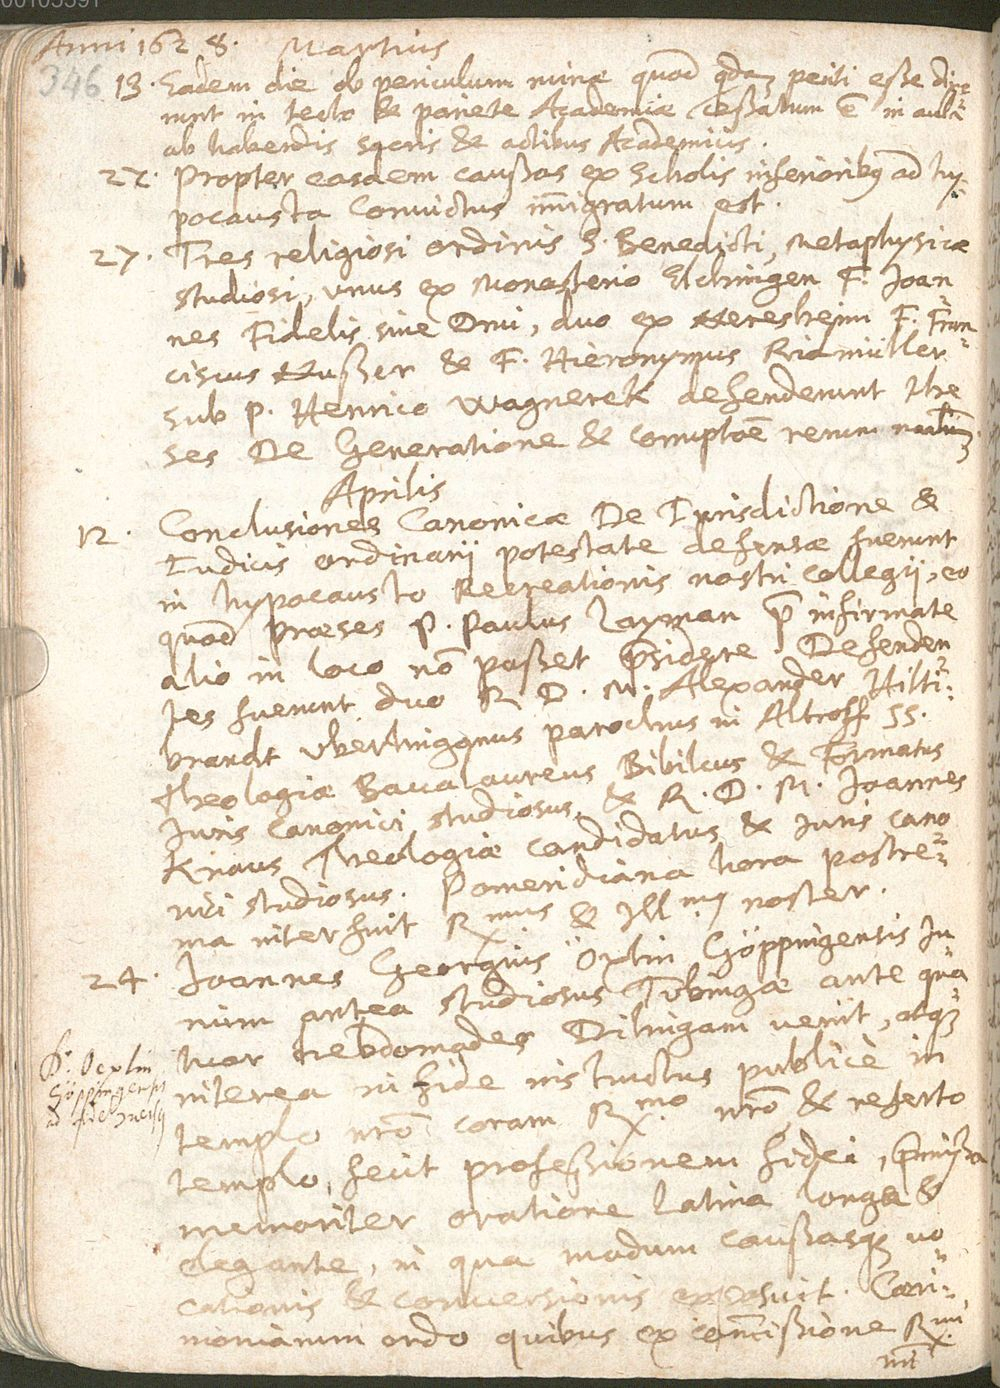 Anni 1628. Martius
346
13. Eadem die ob periculum ruinæ quod qdam periti esse dixe-
runt in tecto & pariete Academiæ cessatum ē in aula
ab habendis sacris & actibus Academicis.
22. Propter easdem caussas ex Scholis inferioribq ad hy-
pocausta Convictus im̄igratum est.
27. Tres religiosi ordinis S. Benedicti, Metaphysicæ
studiosi, vnus ex Monasterio Elchingen F. Joan-
nes Fidelis sive Omi, duo ex Neresheim F. Fran-
ciscus & F. Hieronymus
sub P. Henrico Wagnerek defenderunt the
ses De Generatione & corruptōe rerum nāliū.
Aprilis
12. Conclusiones Canonicæ De Iurisdictione &
Iudicis ordinarij potestate defensæ fuerunt
in hypocausto Recreationis nostri collegij, eo
quod Præses P. Paulus Layman p̄ infirmitate
alio in loco nō posset p̄sidere. Defenden
tes fuerunt duo R. D. M. Alexander Hilti-
brandt Vberlinganus parochus in Altroff SS.
Theologiæ Baccalaureus Biblicus & Formatus
Juris Canonici studiosus, & R. D. M. Joannes
Knaus Theologiæ candidatus & Juris cano
nici studiosus. Pomeridiana hora postre-
ma interfuit Rmus & Illmq noster.
24. Joannes Georgius Öxlin Göppingensis Ju-
rium antea studiosus Tubingæ ante qua-
tuor hebdomades Dilingam venit, atq
interea in fide instructus publicè in
templo nrō coram Rmo nrō & referto
templo, fecit professionem fidei, p̄missa
memoriter oratione Latina longa &
elegante, in qua modum caussasq vo-
cationis & conversionis exposuit. Cæri-
moniarum ordo quibus ex concessione Rmi
Oexlin
Göppingensis
ad fidē